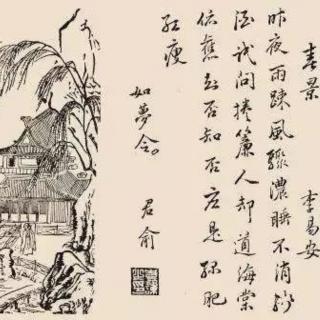 春景 李易安
昨夜雨踈風驟濃睡不消殘
酒試問捲簾人却道海棠
依舊知否知否应是綠肥
紅瘦
如夢令。
君俞